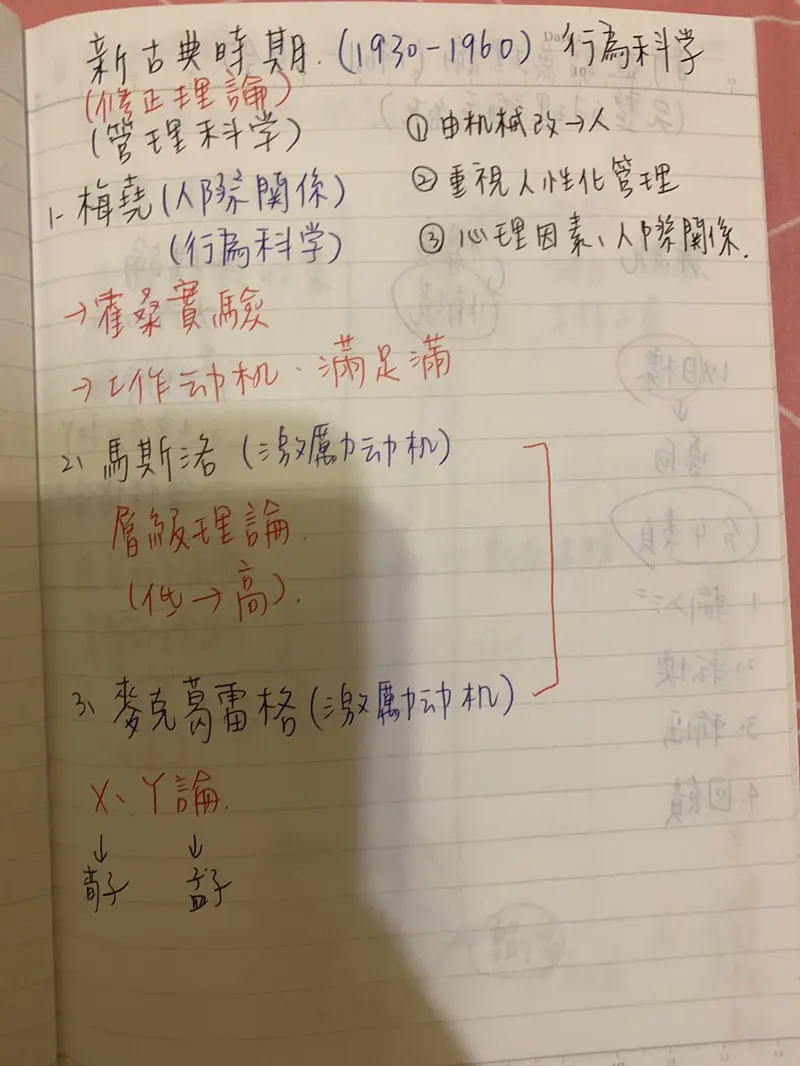 新古典時期.(1930-1960) 行為科学
(修正理論)
(管理科学)
① 由机械改→人
② 重視人性化管理
③ 心理因素、人際關係.
1- 梅堯(人際關係)
(行為科学)
→霍桑實驗
→工作动机、滿足滿
2、馬斯洛(激勵动机)
層級理論.
(低→高).
3、麥克葛雷格(激勵动机)
X、Y論.
↓ ↓
荀子 孟子